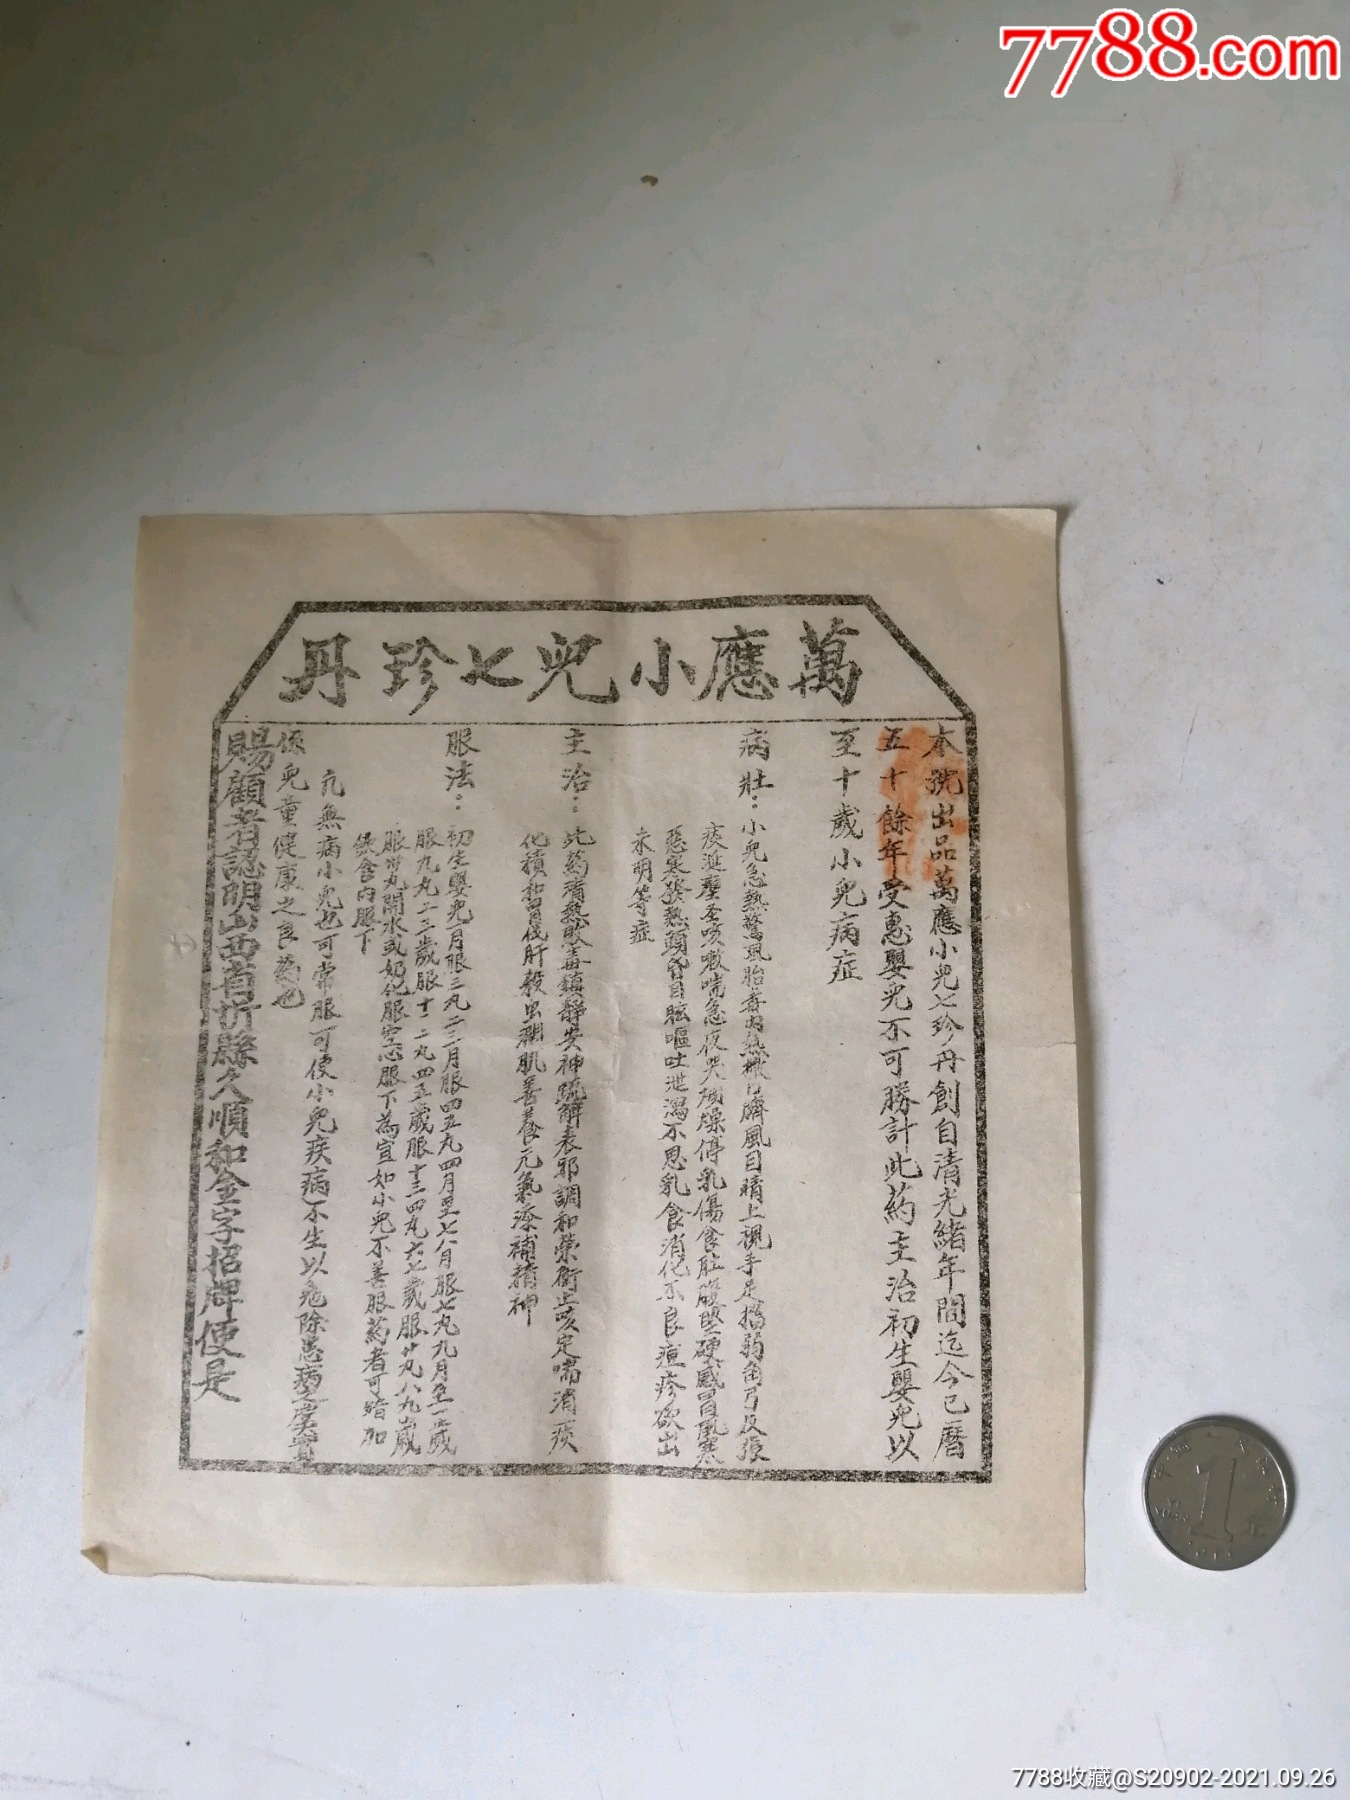 7788.com
萬應小兒七珍丹
本號出品萬應小兒七珍丹創自清光緒年間迄今已曆
五十餘年受惠嬰兒不可勝計此葯主治初生嬰兒以
至十歲小兒病症
病壯：小兒急熱驚風胎毒內熱撒 臍風目睛上視手足搐弱角弓反張
痰涎壅 咳嗽喘急夜哭 燥停乳傷食肚腹堅硬感冒風寒
惡寒發熱頭昏目眩嘔吐泄瀉不思乳食消化不良痘疹欲出
未明等症
主治：此葯清熱敗毒鎮靜安神疏解表邪調和榮衛止咳定喘消痰
化積和胃伐肝殺虫 肌善養元氣 補精神
服法：初生嬰兒一月服三丸二三月服四五丸四月至七八月服七丸九月至一歲
服九丸二三歲服十一二丸四五歲服十三四丸六七歲服廿丸八九歲
服卅丸開水或奶化服空心服下為宜如小兒不善服葯者可 加
飲食內服下
凡無病小兒也可常服可使小兒疾病不生以 除患病之 實
係兒童健康之良葯也
賜顧者認明山西省忻縣久順和金字招牌便是
1
7788收藏@S20902-2021.09.26